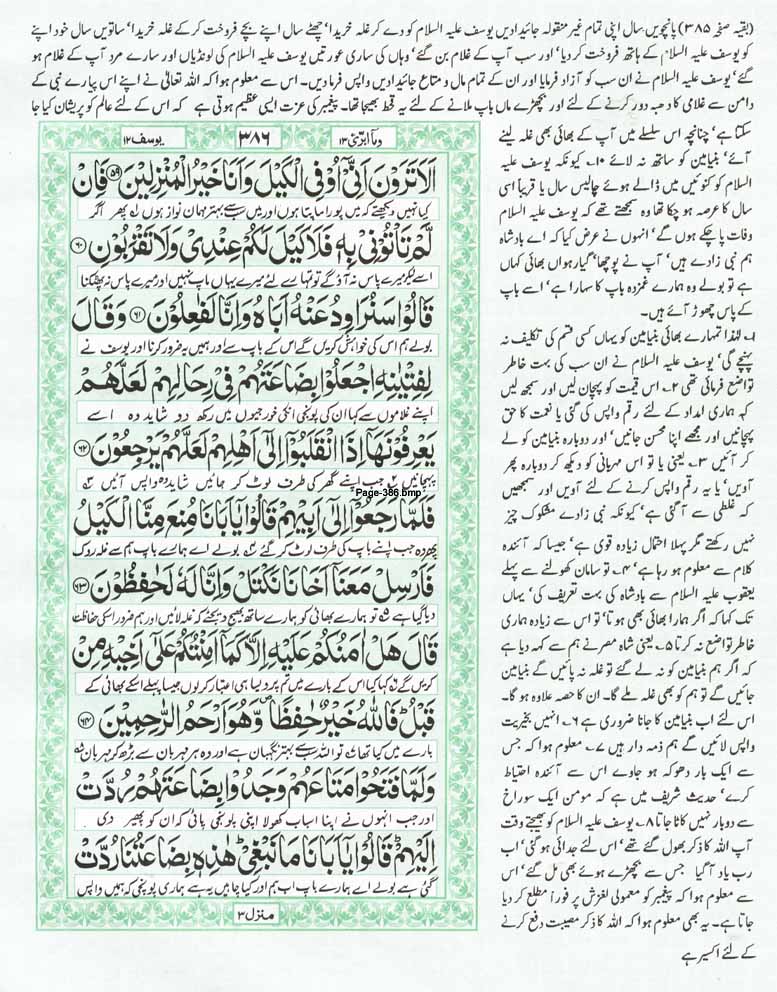 (بقیہ صفحہ ۳۸۵) پانچویں سال اپنی تمام غیر منقولہ جائیدادیں یوسف علیہ السلام کو دے کر غلہ خریدا' چھٹے سال اپنے بچے فروخت کر کے غلہ خریدا' ساتویں سال خود اپنے
کو یوسف علیہ السلام کے ہاتھ فروخت کر دیا' اور سب آپ کے غلام بن گئے' وہاں کی ساری عورتیں یوسف علیہ السلام کی لونڈیاں اور سارے مرد آپ کے غلام ہو
گئے' یوسف علیہ السلام نے ان سب کو آزاد فرمایا اور ان کے تمام مال و متاع جائیدادیں واپس فرما دیں۔ اس سے معلوم ہوا کہ اللہ تعالیٰ نے اپنے اس پیارے نبی کے
دامن سے غلامی کا دھبہ دور کرنے کے لئے اور بچھڑے ماں باپ ملانے کے لئے یہ قحط بھیجا تھا۔ پیغمبر کی عزت ایسی عظیم ہوتی ہے کہ اس کے لئے عالم کو پریشان کیا جا
سکتا ہے' چنانچہ اس سلسلے میں آپ کے بھائی بھی غلہ لینے
آئے' بنیامین کو ساتھ نہ لائے ۱۰۔ کیونکہ یوسف علیہ
السلام کو کنوئیں میں ڈالے ہوئے چالیس سال یا قریباً اسی
سال کا عرصہ ہو چکا تھا وہ سمجھتے تھے کہ یوسف علیہ السلام
وفات پا چکے ہوں گے' انہوں نے عرض کیا کہ اے بادشاہ
ہم نبی زادے ہیں' آپ نے پوچھا' گیارہواں بھائی کہاں
ہے تو بولے وہ ہمارے غمزدہ باپ کا سہارا ہے' اسے باپ
کے پاس چھوڑ آئے ہیں۔
۱۔ لہٰذا تمہارے بھائی بنیامین کو یہاں کسی قسم کی تکلیف نہ
پہنچے گی' یوسف علیہ السلام نے ان سب کی بہت خاطر
تواضع فرمائی تھی ۲۔ اس قیمت کو پہچان لیں اور سمجھ لیں
کہ ہماری امداد کے لئے رقم واپس کی گئی یا نعمت کا حق
پہچانیں اور مجھے اپنا محسن جانیں' اور دوبارہ بنیامین کو لے
کر آئیں ۳۔ یعنی یا تو اس مہربانی کو دیکھ کر دوبارہ پھر
آویں' یا یہ رقم واپس کرنے کے لئے آویں اور سمجھیں
کہ غلطی سے آ گئی ہے' کیونکہ نبی زادے مشکوک چیز
نہیں رکھتے مگر پہلا احتمال زیادہ قوی ہے' جیسا کہ آئندہ
کلام سے معلوم ہو رہا ہے' ۴۔ تو سامان کھولنے سے پہلے
یعقوب علیہ السلام سے بادشاہ کی بہت تعریف کی' یہاں
تک کہا کہ اگر ہمارا بھائی بھی ہوتا' تو اس سے زیادہ ہماری
خاطر تواضع نہ کرتا ۵۔ یعنی شاہ مصر نے ہم سے کہہ دیا ہے
کہ اگر ہم بنیامین کو نہ لے گئے تو غلہ نہ پائیں گے بنیامین
جائیں گے تو ہم کو بھی غلہ ملے گا۔ ان کا حصہ علاوہ ہو گا۔
اس لئے اب بنیامین کا جانا ضروری ہے ۶۔ انہیں بخیریت
واپس لائیں گے ہم ذمہ دار ہیں ۷۔ معلوم ہوا کہ جس
سے ایک بار دھوکہ ہو جاوے اس سے آئندہ احتیاط
کرے' حدیث شریف میں ہے کہ مومن ایک سوراخ
سے دوبار نہیں کاٹا جاتا ۸۔ یوسف علیہ السلام کو بھیجتے وقت
آپ اللہ کا ذکر بھول گئے تھے' اس لئے جدائی ہو گئی' اب
رب یاد آ گیا جس سے بچھڑے ہوئے بھی مل گئے' اس
سے معلوم ہوا کہ پیغمبر کو معمولی لغزش پر فوراً مطلع کر دیا
جاتا ہے۔ یہ بھی معلوم ہوا کہ اللہ کا ذکر مصیبت دفع کرنے
کے لئے اکسیر ہے
وما ابرئ ۱۳
۳۸۶
یوسف ۱۲
اَلَا تَرَوْنَ اَنِّیْۤ اُوْفِی الْكَیْلَ وَاَنَا خَیْرُ الْمُنْزِلِیْنَ ﴿۵۹﴾ فَاِنْ
کیا نہیں دیکھتے کہ میں پورا ماپتا ہوں اور میں سب سے بہتر مہمان نواز ہوں ۱ پھر اگر
لَّمْ تَاْتُوْنِیْ بِهٖ فَلَا كَیْلَ لَكُمْ عِنْدِیْ وَلَا تَقْرَبُوْنِ ﴿۶۰﴾
اسے لیکر میرے پاس نہ آؤ گے تو تمہارے لئے میرے یہاں ماپ نہیں اور میرے پاس نہ پھٹکنا
قَالُوْا سَنُرَاوِدُ عَنْهُ اَبَاهُ وَاِنَّا لَفٰعِلُوْنَ ﴿۶۱﴾ وَقَالَ
بولے ہم اس کی خواہش کریں گے اس کے باپ سے اور ہمیں یہ ضرور کرنا اور یوسف نے
لِفِتْیٰنِهِ اجْعَلُوْا بِضَاعَتَهُمْ فِیْ رِحَالِهِمْ لَعَلَّهُمْ
اپنے غلاموں سے کہا ان کی پونجی انکی خورجیوں میں رکھ دو شاید وہ اسے
یَعْرِفُوْنَهَاۤ اِذَا انْقَلَبُوْۤا اِلٰۤی اَهْلِهِمْ لَعَلَّهُمْ یَرْجِعُوْنَ ﴿۶۲﴾
پہچانیں ۲ جب اپنے گھر کی طرف لوٹ کر جائیں شاید وہ واپس آئیں ۳
Page-386.bmp
فَلَمَّا رَجَعُوْۤا اِلٰۤی اَبِیْهِمْ قَالُوْا یٰۤاَبَانَا مُنِعَ مِنَّا الْكَیْلُ
پھر وہ جب اپنے باپ کی طرف لوٹ کر گئے ۴ بولے اے ہمارے باپ ہم سے غلہ روک
فَاَرْسِلْ مَعَنَاۤ اَخَانَا نَكْتَلْ وَاِنَّا لَهٗ لَحٰفِظُوْنَ ﴿۶۳﴾
دیا گیا ہے ۵ تو ہمارے بھائی کو ہمارے ساتھ بھیج دیجئے کہ غلہ لائیں اور ہم ضرور اسکی حفاظت
قَالَ هَلْ اٰمَنُكُمْ عَلَیْهِ اِلَّا كَمَاۤ اَمِنْتُكُمْ عَلٰۤی اَخِیْهِ مِنْ
کریں گے ۶ کہا کیا اس کے بارے میں تم پر ویسا ہی اعتبار کر لوں جیسا پہلے اسکے بھائی کے
قَبْلُ ؕ فَاللّٰهُ خَیْرٌ حٰفِظًا ۪ وَّهُوَ اَرْحَمُ الرّٰحِمِیْنَ ﴿۶۴﴾
بارے میں کیا تھا ۷ تو اللہ سب سے بہتر نگہبان ہے اور وہ ہر مہربان سے بڑھ کر مہربان ۸
وَلَمَّا فَتَحُوْا مَتَاعَهُمْ وَجَدُوْا بِضَاعَتَهُمْ رُدَّتْ
اور جب انہوں نے اپنا اسباب کھولا اپنی پونجی پائی کہ ان کو پھیر دی
اِلَیْهِمْ ؕ قَالُوْا یٰۤاَبَانَا مَا نَبْغِیْ ؕ هٰذِهٖ بِضَاعَتُنَا رُدَّتْ
گئی ہے بولے اے ہمارے باپ اب ہم اور کیا چاہیں یہ ہے ہماری پونجی کہ ہمیں واپس
منزل ۳